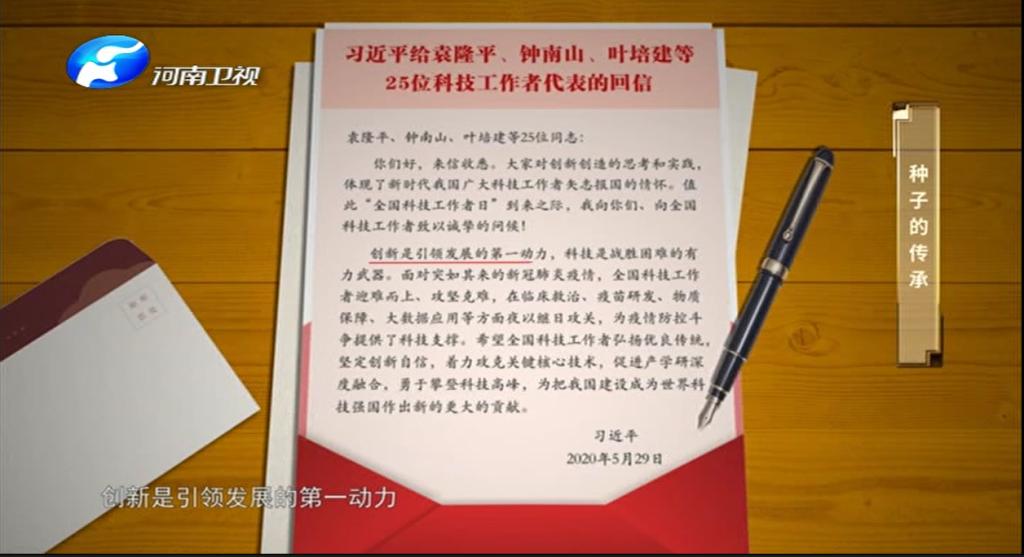 河南卫视
习近平给袁隆平、钟南山、叶培建等
25位科技工作者代表的回信
袁隆平、钟南山、叶培建等25位同志：
你们好，来信收悉。大家对创新创造的思考和实践，
体现了新时代我国广大科技工作者矢志报国的情怀。值
此“全国科技工作者日”到来之际，我向你们、向全国
科技工作者致以诚挚的问候！
创新是引领发展的第一动力，科技是战胜困难的有
力武器。面对突如其来的新冠肺炎疫情，全国科技工作
者迎难而上、攻坚克难，在临床救治、疫苗研发、物质
保障、大数据应用等方面夜以继日攻关，为疫情防控斗
争提供了科技支撑。希望全国科技工作者弘扬优良传统，
坚定创新自信，着力攻克关键核心技术，促进产学研深
度融合，勇于攀登科技高峰，为把我国建设成为世界科
技强国作出新的更大的贡献。
习近平
2020年5月29日
种子的传承
创新是引领发展的第一动力